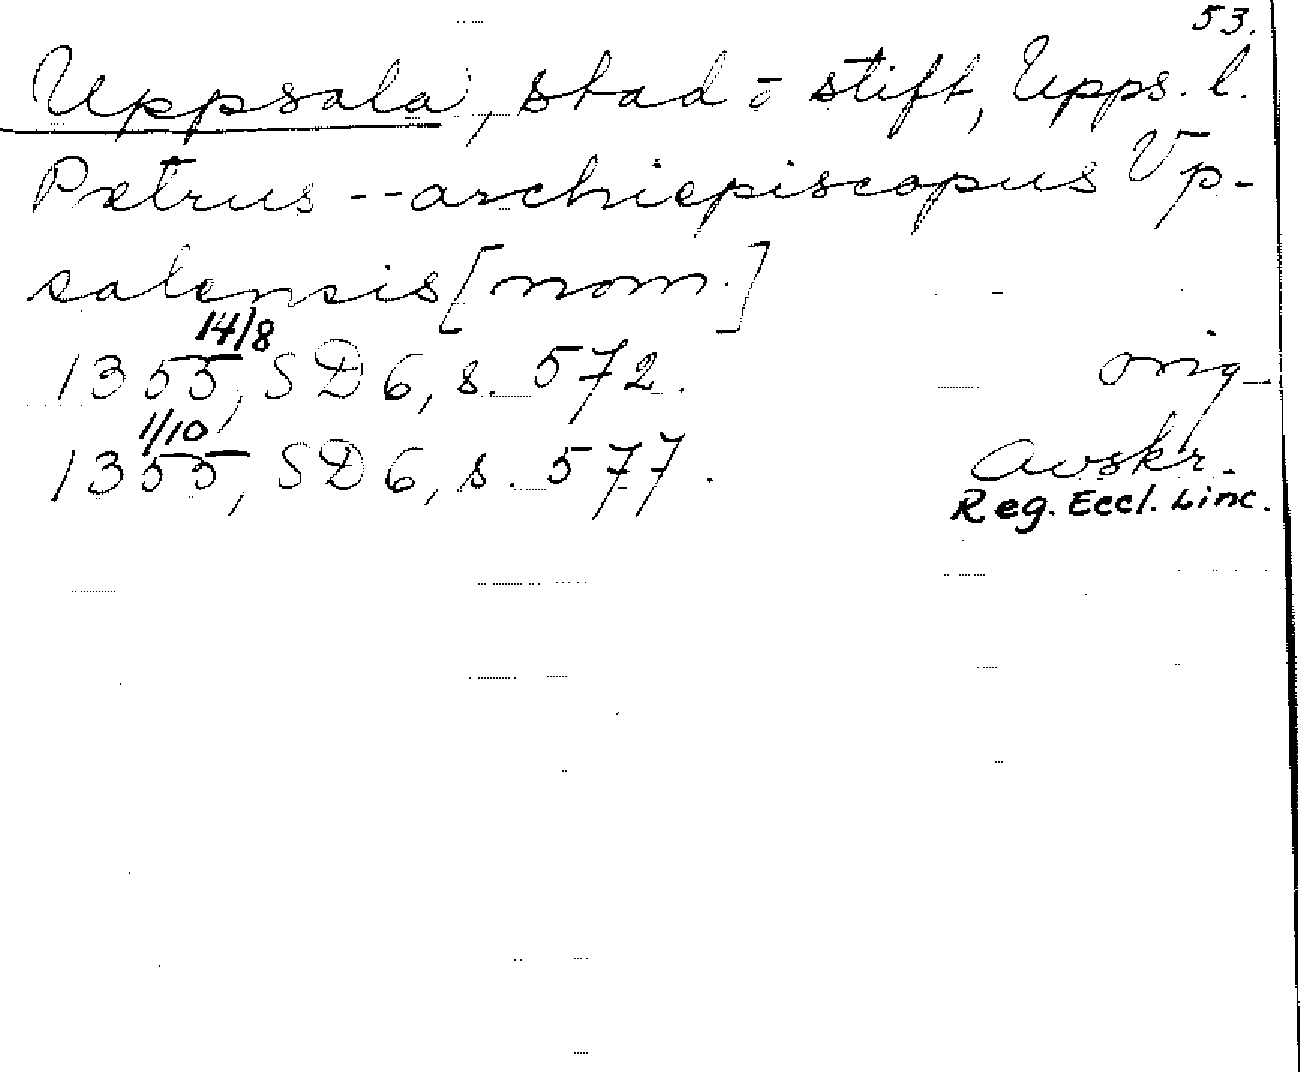 53.
Uppsala, stad o stift, Upps. l.
Petrus -- archiepiscopus Vp-
salensis [nom.]
14/8
1355, SD 6, s. 572. orig.
1/10
1355, SD 6, s. 577. Avskr.
Reg. Eccl. Linc.